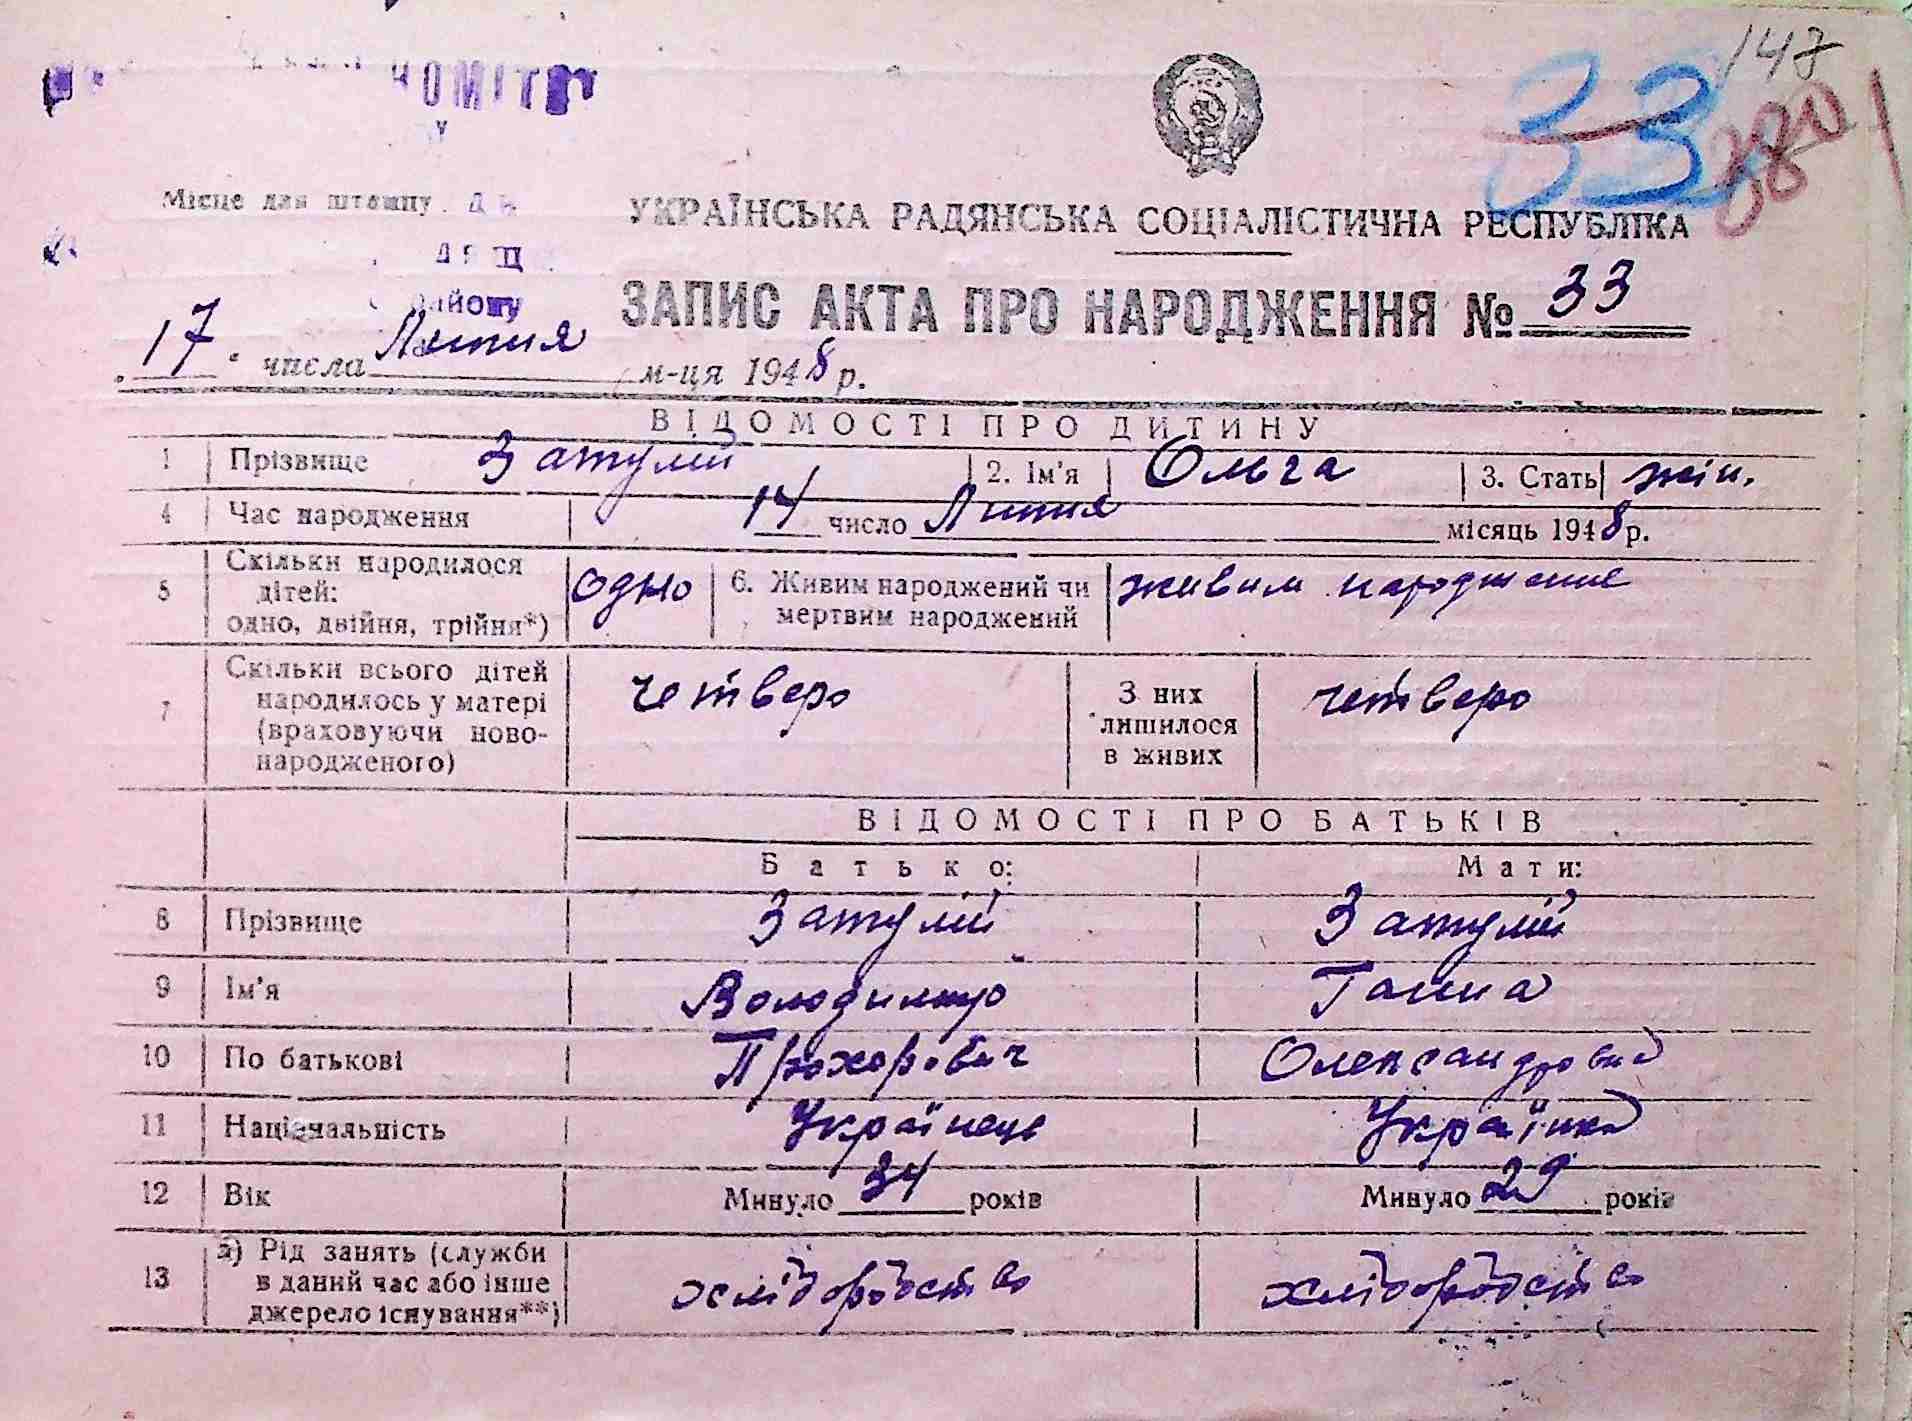 147
33
880
КОМІТЕТ
У
Місце для штампу
району
УКРАЇНСЬКА РАДЯНСЬКА СОЦІАЛІСТИЧНА РЕСПУБЛІКА
ЗАПИС АКТА ПРО НАРОДЖЕННЯ № 33
17 числа Липня м-ця 1948 р.
ВІДОМОСТІ ПРО ДИТИНУ
1 Прізвище Затулій 2. Ім'я Ольга 3. Стать жін.
4 Час народження 14 число Липня місяць 1948 р.
5 Скільки народилося дітей: одно, двійня, трійня*) одно 6. Живим народжений чи мертвим народжений живим народжение
7 Скільки всього дітей народилось у матері (враховуючи ново-народженого) четверо З них лишилося в живих четверо
ВІДОМОСТІ ПРО БАТЬКІВ
Батько: Мати:
8 Прізвище Затулій Затулій
9 Ім'я Володимир Ганна
10 По батькові Прохорович Олександровна
11 Національність Українець Українка
12 Вік Минуло 34 років Минуло 29 років
13 а) Рід занять (служби в даний час або інше джерело існування**) хліборобство хліборобство